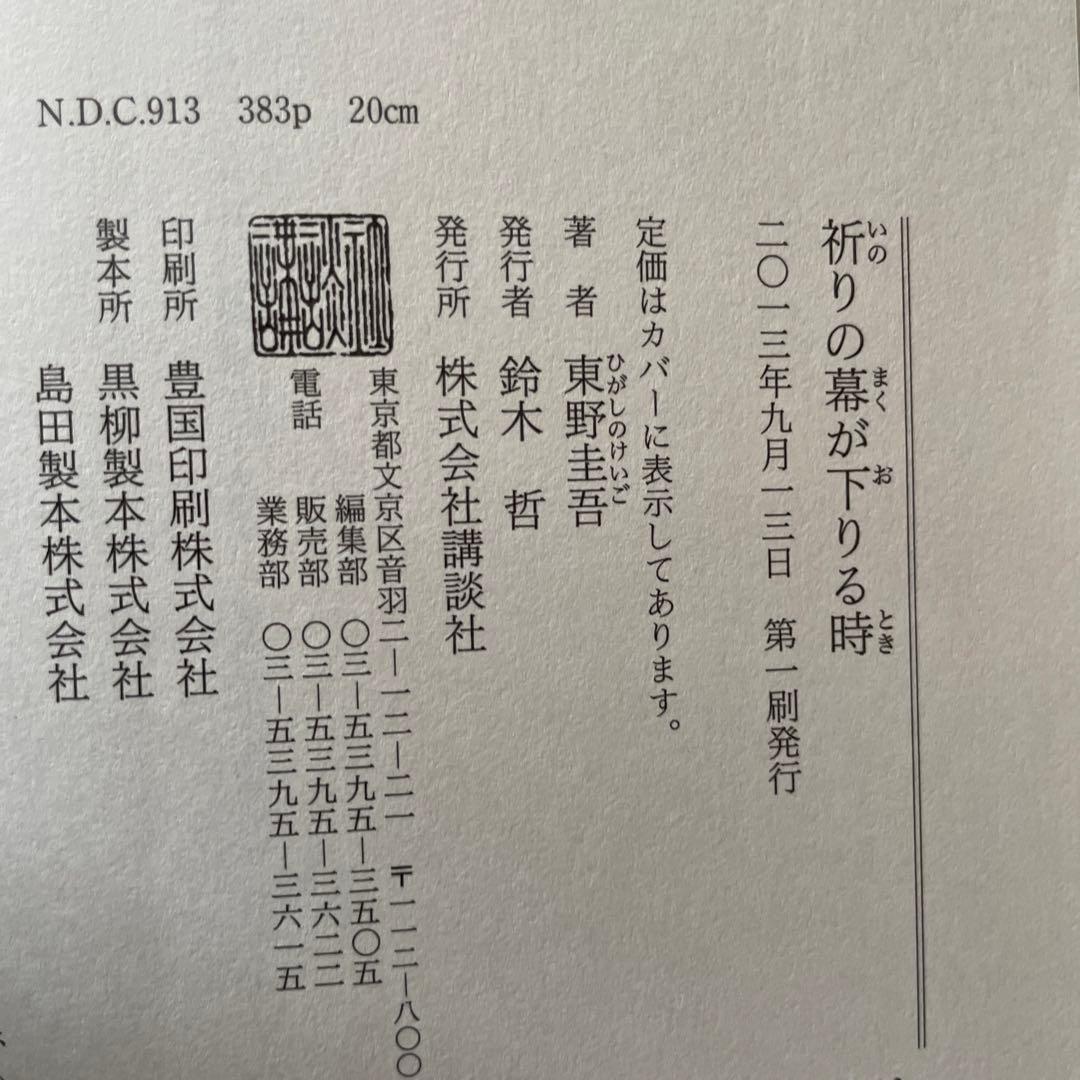 N.D.C.913 383p 20cm
祈りの幕が下りる時
いの まく お とき
二〇一三年九月一三日 第一刷発行
定価はカバーに表示してあります。
著者 東野圭吾
ひがしのけいご
発行者 鈴木 哲
発行所 株式会社講談社
東京都文京区音羽二―一二―二一 〒一一二―八〇〇
電話 編集部 〇三―五三九五―三五〇五
販売部 〇三―五三九五―三六二二
業務部 〇三―五三九五―三六一五
印刷所 豊国印刷株式会社
製本所 黒柳製本株式会社
島田製本株式会社